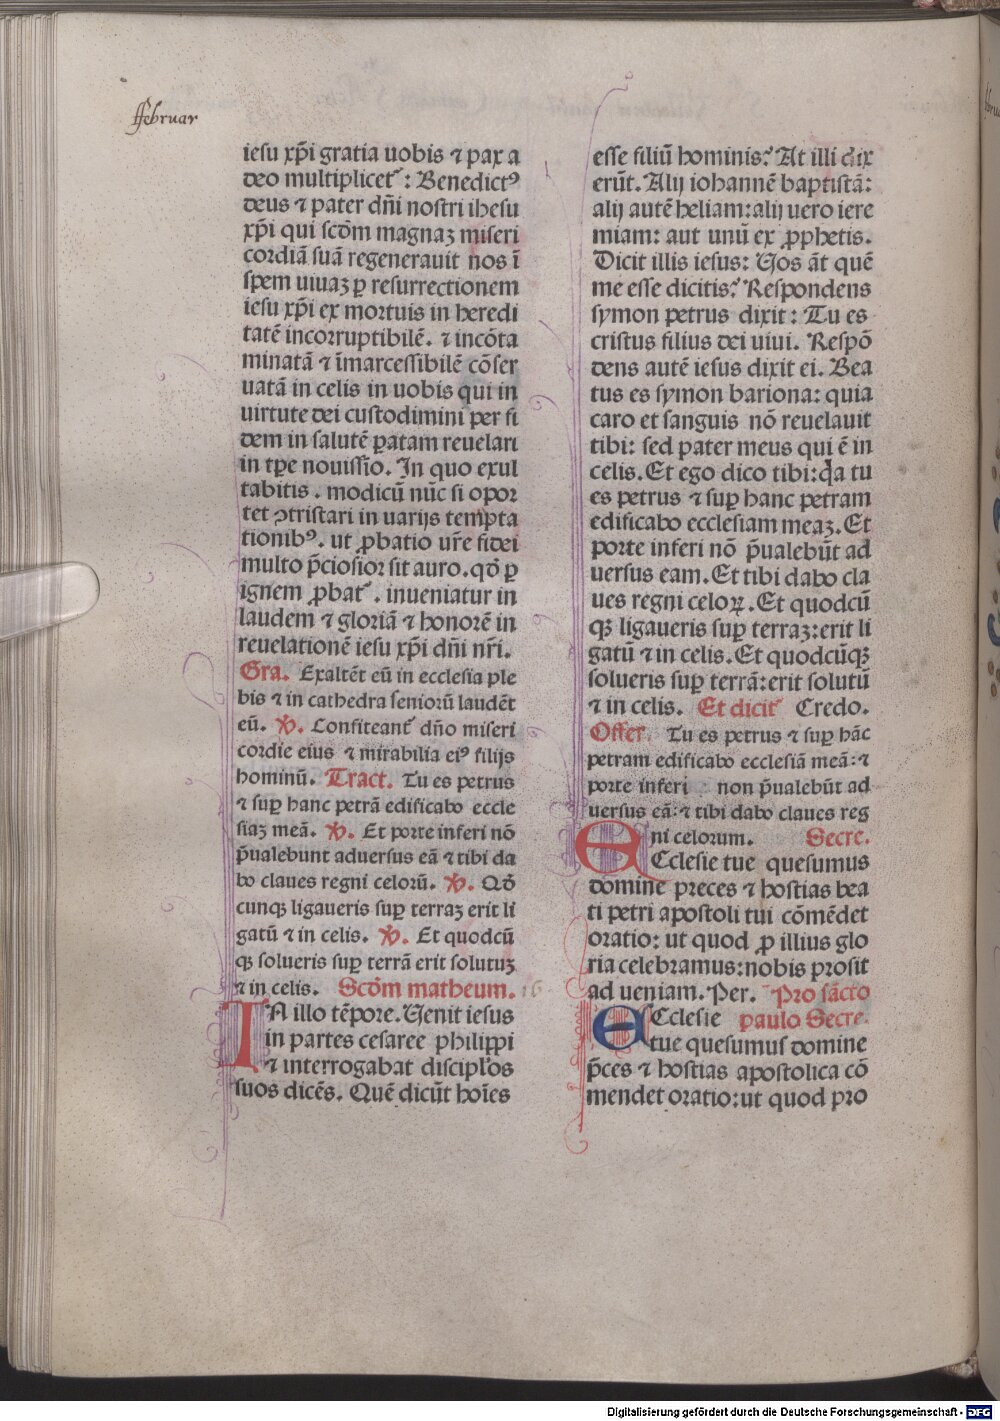 ffebruar
iesu xp̄i gratia uobis ⁊ pax a
deo multiplicet᷑: Benedictꝯ
deus ⁊ pater dn̄i nostri ihesu
xp̄i qui scd̄m magnaꝫ miseri
cordiā suā regenerauit nos ī
spem uiuaꝫ ꝑ resurrectionem
iesu xp̄i ex mortuis in heredi
tatē incorruptibilē. ⁊ incōta
minatā ⁊ īmarcessibilē cōser
uatā in celis in uobis qui in
uirtute dei custodimini per fi
dem in salutē ꝑatam reuelari
in tp̄e nouissīo. In quo exul
tabitis. modicū nūc si opor
tet ꝯtristari in uarijs tempta
tionibꝯ. ut ꝓbatio ur̄e fidei
multo p̄ciosior sit auro. qd̄ ꝑ
ignem ꝓbat᷑. inueniatur in
laudem ⁊ gloriā ⁊ honorē in
reuelationē iesu xp̄i dn̄i nr̄i.
Gra. Exaltēt eū in ecclesia ple
bis ⁊ in cathedra seniorū laudēt
eū. ℣. Confiteant᷑ dn̄o miseri
cordie eius ⁊ mirabilia eiꝯ filijs
hominū. Tract. Tu es petrus
⁊ suꝑ hanc petrā edificabo eccle
siaꝫ meā. ℣. Et porte inferi nō
p̄ualebunt aduersus eā ⁊ tibi da
bo claues regni celorū. ℣. Qd̄
cunqꝫ ligaueris suꝑ terraꝫ erit li
gatū ⁊ in celis. ℣. Et quodcū
qꝫ solueris suꝑ terrā erit solutuꝫ
⁊ in celis. Scd̄m matheum. 16.
IN illo tēpore. Uenit iesus
in partes cesaree philippi
⁊ interrogabat discipl̄os
suos dicēs. Quē dicūt hoīes
esse filiū hominis? At illi dix
erūt. Alij iohannē baptistā:
alij autē heliam: alij uero iere
miam: aut unū ex ꝓphetis.
Dicit illis iesus: Uos āt quē
me esse dicitis? Respondens
symon petrus dixit: Tu es
cristus filius dei uiui. Respō
dens autē iesus dixit ei. Bea
tus es symon bariona: quia
caro et sanguis nō reuelauit
tibi: sed pater meus qui ē in
celis. Et ego dico tibi: qa tu
es petrus ⁊ suꝑ hanc petram
edificabo ecclesiam meaꝫ. Et
porte inferi nō p̄ualebūt ad
uersus eam. Et tibi dabo cla
ues regni celoꝝ. Et quodcū
qꝫ ligaueris suꝑ terraꝫ: erit li
gatū ⁊ in celis. Et quodcūqꝫ
solueris suꝑ terrā: erit solutū
⁊ in celis. Et dicit᷑ Credo.
Offer. Tu es petrus ⁊ suꝑ hāc
petram edificabo ecclesiā meā: ⁊
porte inferi non p̄ualebūt ad
uersus eā: ⁊ tibi dabo claues reg
ni celorum. Secre.
ECclesie tue quesumus
domine preces ⁊ hostias bea
ti petri apostoli tui cōmēdet
oratio: ut quod ꝓ illius glo
ria celebramus: nobis prosit
ad ueniam. Per. Pro sācto
ECclesie paulo Secre.
tue quesumus domine
p̄ces ⁊ hostias apostolica cō
mendet oratio: ut quod pro
Digitalisierung gefördert durch die Deutsche Forschungsgemeinschaft - DFG